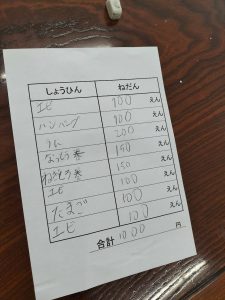 しょうひん ねだん
エビ 100 えん
ハンバーグ 100 えん
200 えん
なっとう巻 150 えん
ねぎとろ巻 150 えん
エビ 100 えん
たまご 100 えん
エビ 100 えん
合計 1000 円